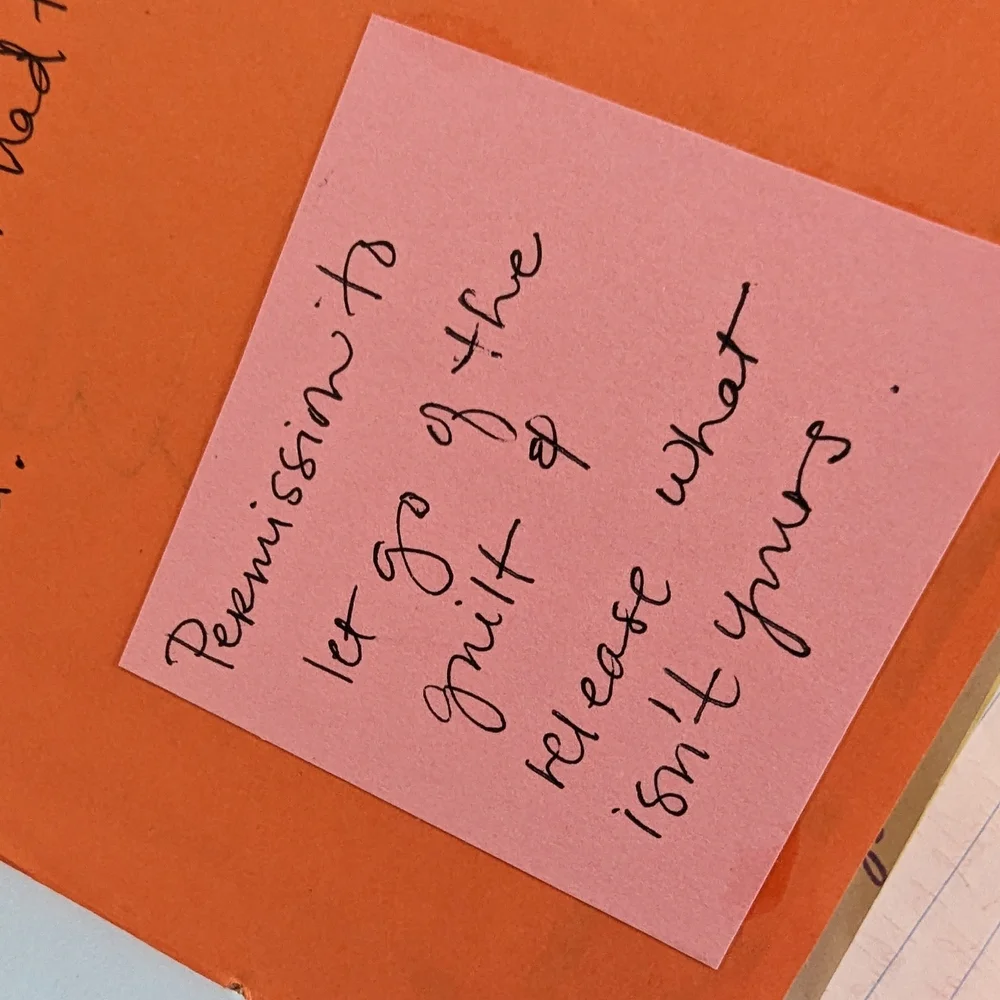 Permission to
let go of the
guilt &
release what
isn't yours.
had